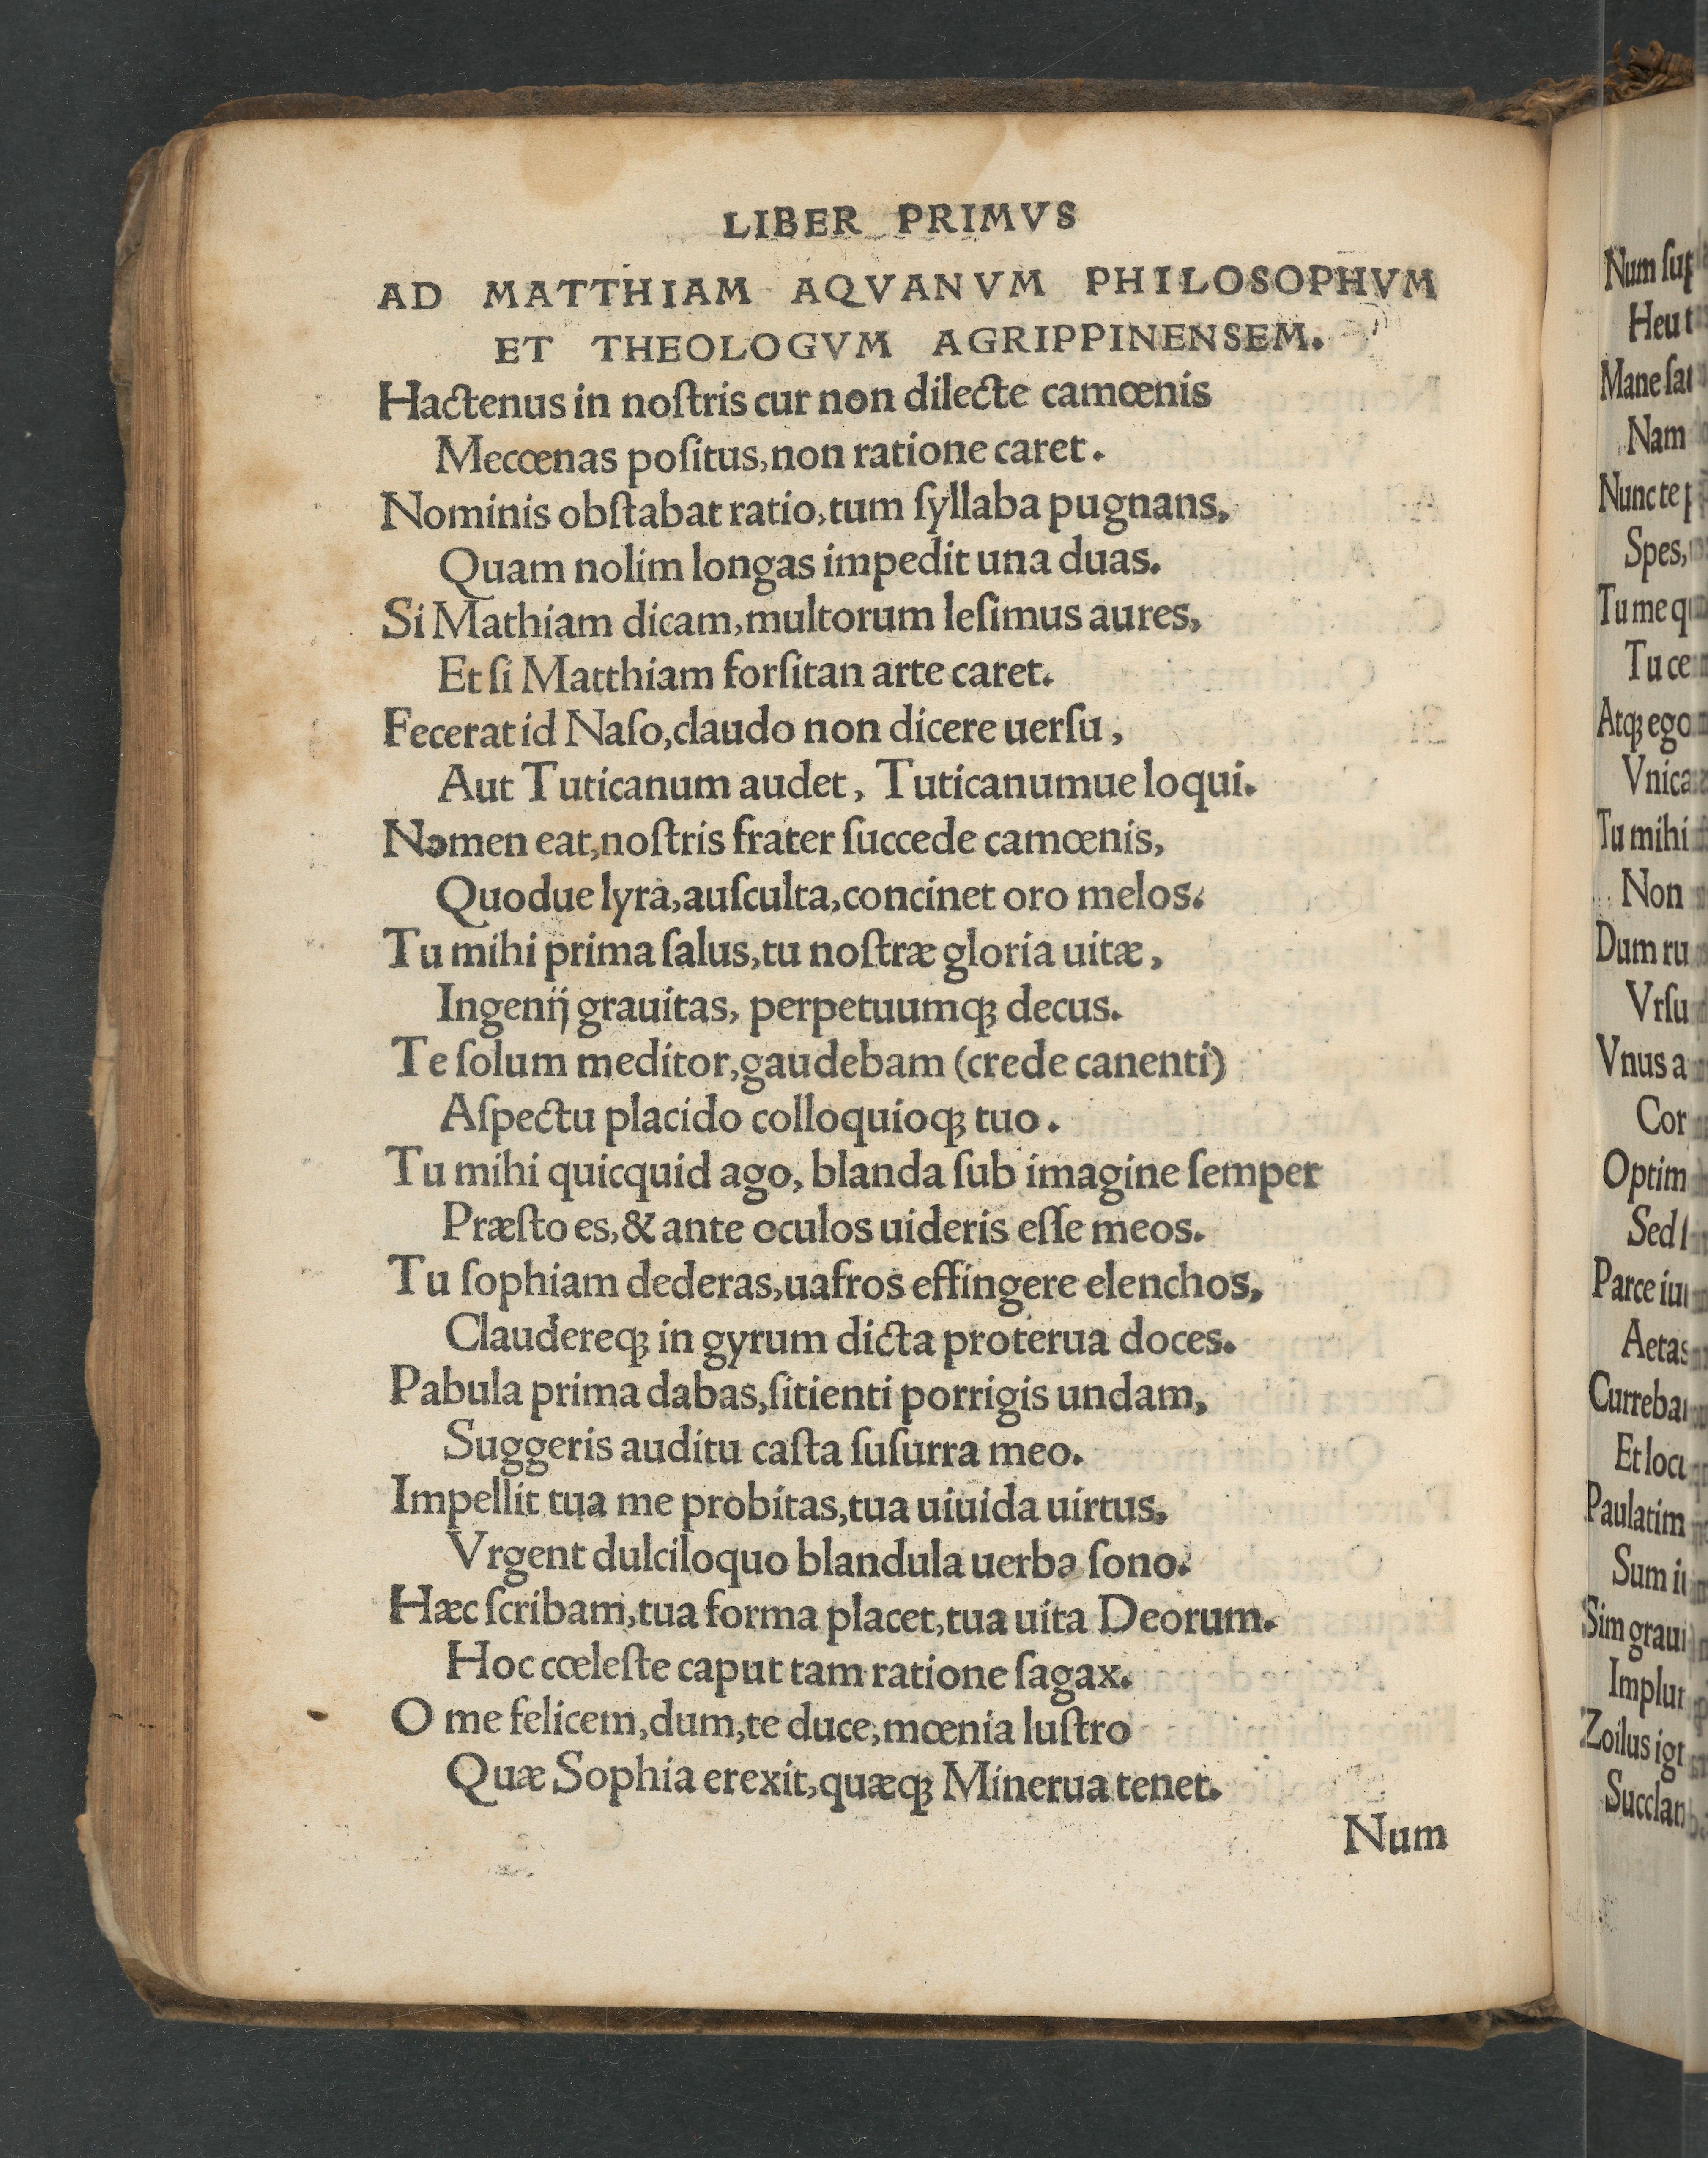 LIBER PRIMVS
AD MATTHIAM AQVANVM PHILOSOPHVM
ET THEOLOGVM AGRIPPINENSEM.
Hactenus in noſtris cur non dilecte camœnis
Mecœnas poſitus, non ratione caret.
Nominis obſtabat ratio, tum ſyllaba pugnans,
Quam nolim longas impedit una duas.
Si Mathiam dicam, multorum leſimus aures,
Et ſi Matthiam forſitan arte caret.
Fecerat id Naſo, claudo non dicere uerſu,
Aut Tuticanum audet, Tuticanumue loqui.
Nomen eat, noſtris frater ſuccede camœnis,
Quodue lyra, auſculta, concinet oro melos.
Tu mihi prima ſalus, tu noſtræ gloria uitæ,
Ingenij grauitas, perpetuumqꝫ decus.
Te ſolum meditor, gaudebam (crede canenti)
Aſpectu placido colloquioqꝫ tuo.
Tu mihi quicquid ago, blanda ſub imagine ſemper
Præſto es, & ante oculos uideris eſſe meos.
Tu ſophiam dederas, uafros effingere elenchos,
Claudereqꝫ in gyrum dicta proterua doces.
Pabula prima dabas, ſitienti porrigis undam,
Suggeris auditu caſta ſuſurra meo.
Impellit tua me probitas, tua uiuida uirtus,
Vrgent dulciloquo blandula uerba ſono.
Hæc ſcribam, tua forma placet, tua uita Deorum.
Hoc cœleſte caput tam ratione ſagax.
O me felicem, dum, te duce, mœnia luſtro
Quæ Sophia erexit, quæqꝫ Minerua tenet.
Num
Num ſup
Heu t
Mane ſat
Nam
Nunc te p
Spes,
Tu me q
Tu ce
Atqꝫ ego
Vnica
Tu mihi
Non
Dum ru
Vrſu
Vnus a
Cor
Optim
Sed
Parce iu
Aetas
Curreba
Et loc
Paulatim
Sum i
Sim graui
Implu
Zoilus igt
Succlan